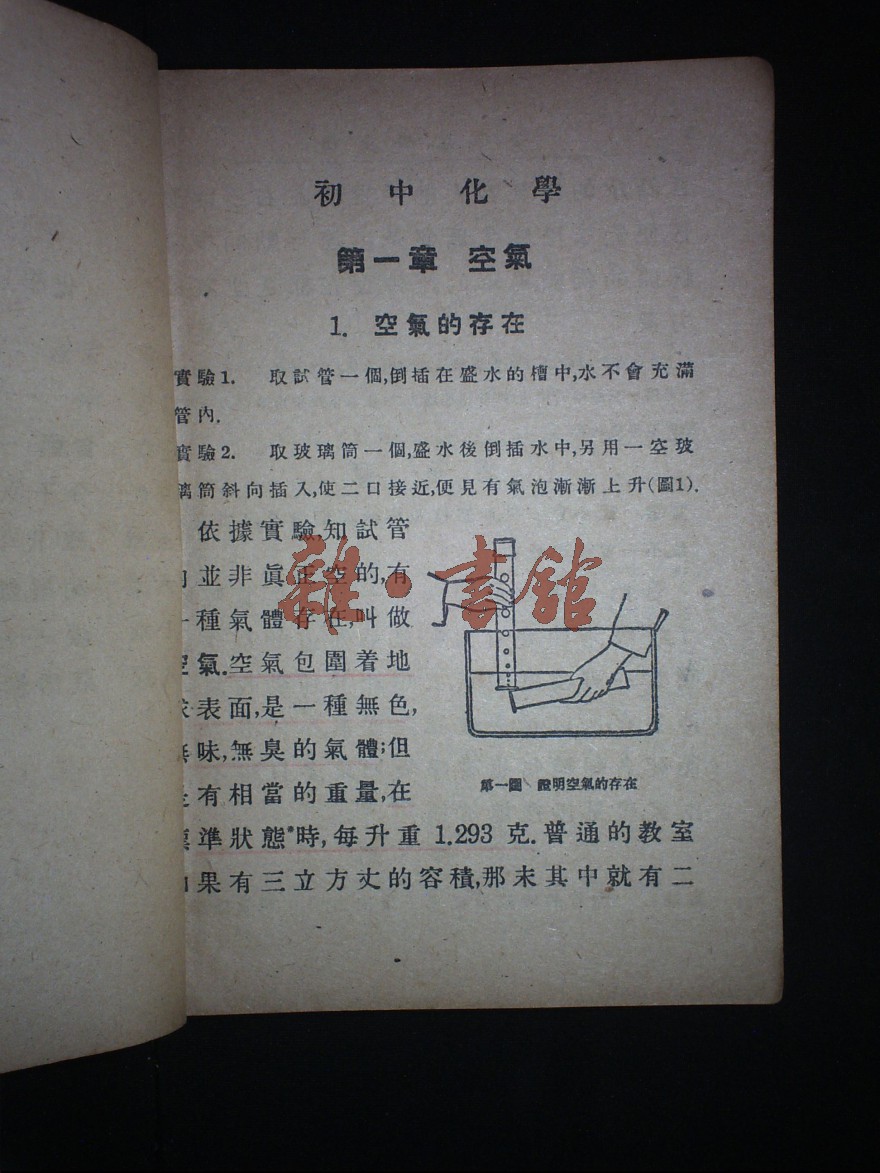 初中化學
第一章 空氣
1. 空氣的存在
實驗1. 取試管一個,倒插在盛水的槽中,水不會充滿
管內.
實驗2. 取玻璃筒一個,盛水後倒插水中,另用一空玻
璃筒斜向插入,使二口接近,便見有氣泡漸漸上升(圖1).
依據實驗,知試管
並非眞正空的,有
種氣體存在,叫做
空氣.空氣包圍着地
表面,是一種無色,
無味,無臭的氣體;但
有相當的重量,在
標準狀態*時,每升重1.293克.普通的教室
果有三立方丈的容積,那末其中就有二
第一圖 證明空氣的存在
雜·書館